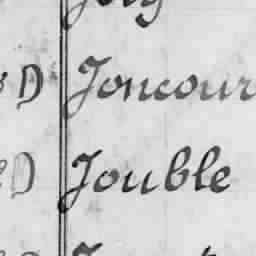 D Joncour
D Jouble